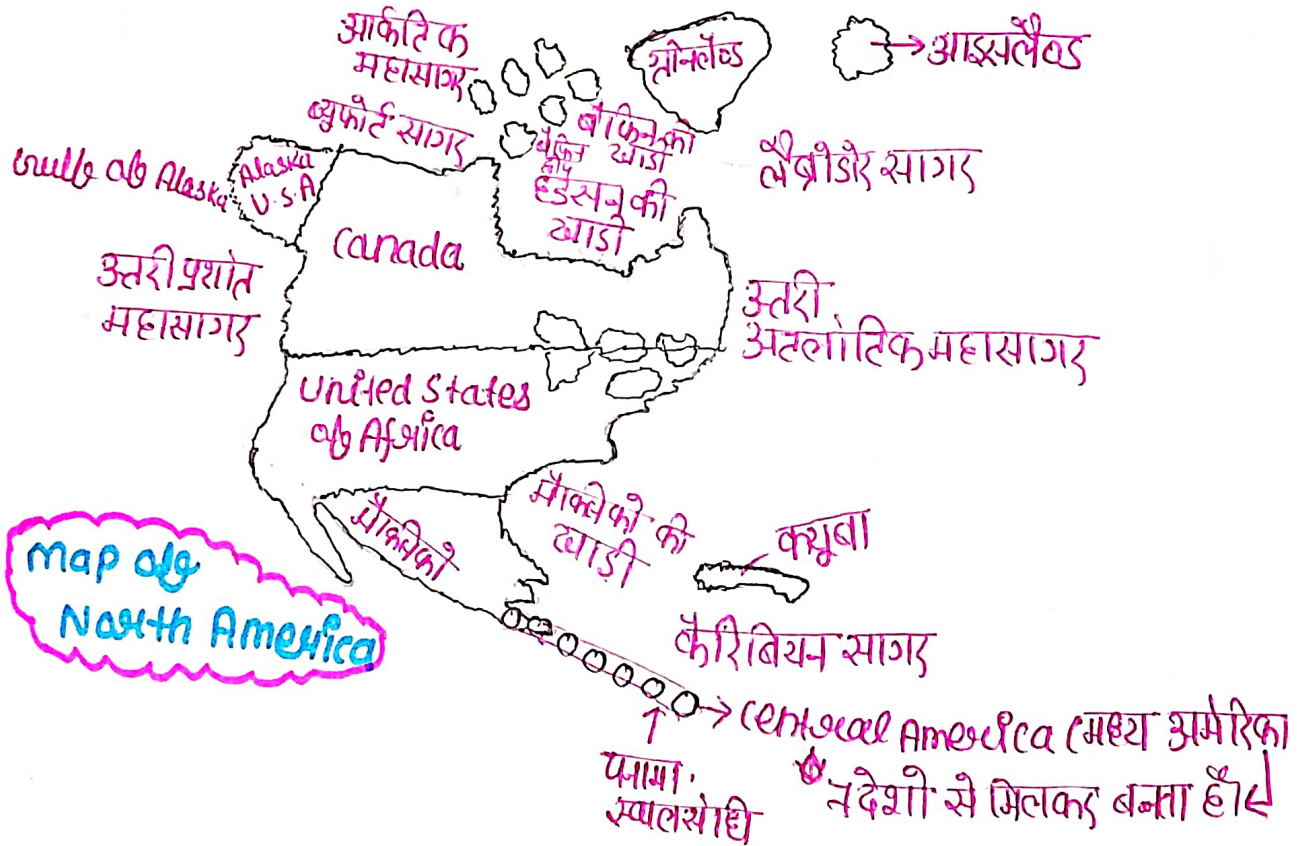 आर्कटिक
महासागर
ब्युफोर्ट सागर
ग्रीनलैण्ड
→आइसलैण्ड
बैफिन की
खाडी
बैफिन
द्वीप
हडसन की
खाडी
लैब्रोडोर सागर
Gulf of Alaska
Alaska
U.S.A
Canada
उत्तरी प्रशांत
महासागर
उत्तरी
अटलांटिक महासागर
United States
of Africa
मैक्सिको
मैक्सिको की
खाडी
क्यूबा
Map of
North America
कैरिबियन सागर
→ Central America (मध्य अमेरिका
देशो से मिलकर बनता है।)
पनामा
स्थलसंधि